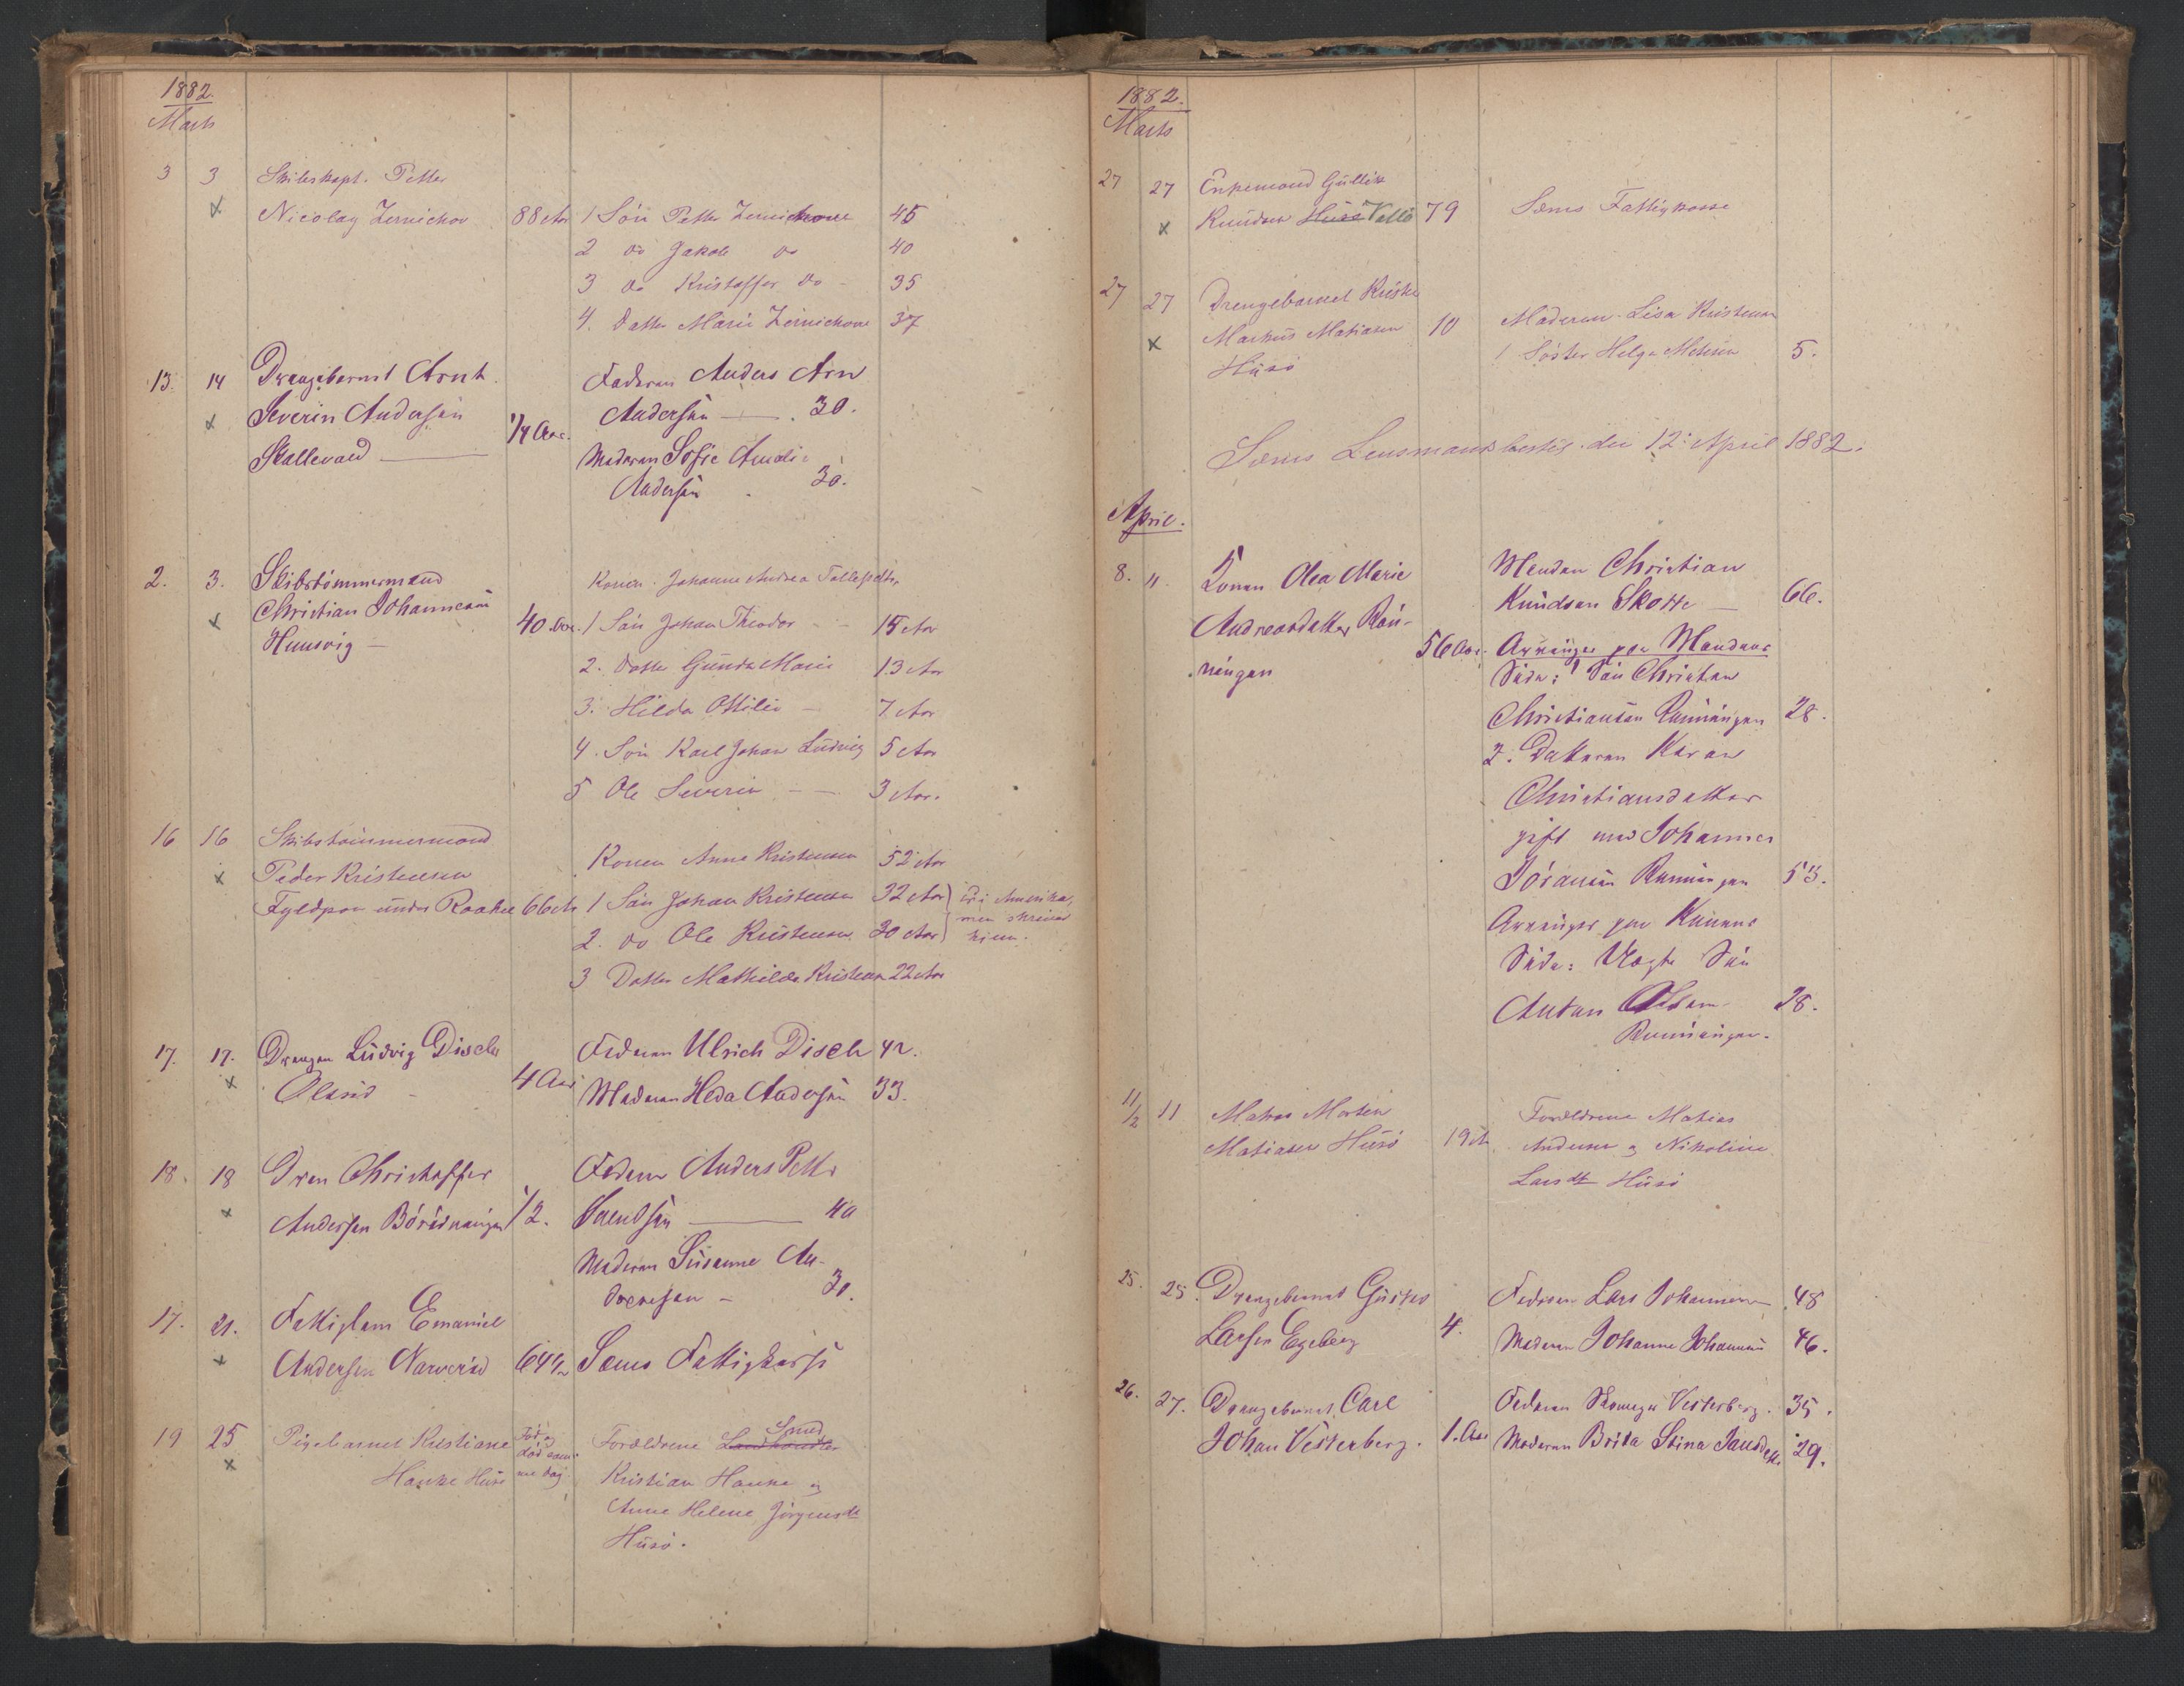 1882.
Marts
3 3 Skibskapt. Petter
Nicolay Zernichow 88 Aar 1 Sön Petter Zernichow 45
2 do Jakob do 40
3 do Kristoffer do - 35
4. Datter Marie Zernichow 37
13. 14 Drengebarnet Arnt Faderen Anders Arn
Severin Andersen 1/4 Aar. Andersen — 30.
Stallevard — Moderen Sofie Amalie
Andersen 30.
2. 3. Skibstömmermand Konen Johanne Andrea
Christian Johannesen 40 Aar. 1 Sön Johan Theodor - 15 Aar
Huusvig — 2. Datter Gunda Marie 13 Aar
3. Hilda Ottilie - 7 Aar
4. Sön Karl Johan Ludvig 5 Aar
5 Ole Severin - - 3 Aar.
16 16 Skibstömmermand
Peder Kristensen Konen Anne Kristensen 52 Aar
Fyldpaa under Raakel 66 Ar 1 Sön Johan Kristensen 32 Aar Er i Amerika,
2. do Ole Kristensen 30 Aar men skriver hjem.
3 Datter Mathilde Kristensen 22 Aar
17. 17. Drengen Ludvig Disch Faderen Ulrich Disch 42.
Ölsrød - 4 Aar Moderen Heda Andersen 33.
18. 18 Dren Christoffer Faderen Anders Petter
Andersen 1/2. Svendsen — 40
Moderen Susanne An-
dreasen - 30.
17. 21. Fattiglem Emanuel
Andersen Narverød 64 1/2 Sems Fattigkasse
19 25 Pigebarnet Kristiane Föd og Forældrene Landhandler Smed
Hanke Husö död sam- Kristian Hanke og
me dag Anne Helene Jörgensdt
Husö.
1882.
Marts
27 27 Enkemand Gullik
Knudsen Husö Vallö 79 Sems Fattigkasse
27 27 Drengebarnet Kristi
Markus Matiasen 10 Moderen Lisa Kristensen
Husö 1 Söster Helga Matisen 5.
Sems Lensmandsbestil. den 12. April 1882.
April.
8. 11. Konen Olea Marie Manden Christian
Andreasdatter Rön- Knudsen Skotte — 66.
ningen 56 Aar. Arvinger paa Mandens
Side: 1 Sön Christian
Christiansen Rönningen 28.
2. Datteren Karen
Christiansdatter
gift med Johannes
Rönningen 53.
Arvinger paa Konens
Side: Uægte Sön
Anton Olsen 28.
Rönningen.
11/2 11 Matros Morten Forældrene Matias
Matiasen Husö 19 Ar Andersen og Nikoline
Larsdt Husö
25. 25. Drengebarnet Gustav Faderen Lars Johannesen 48
Larsen Egeberg 4. Moderen Johanne Johannesen 46.
26. 27. Drengebarnet Carl Faderen Vesterberg. 35.
Johan Vesterberg. 1. Aar Moderen Brita Stina Jansdatt. 29.